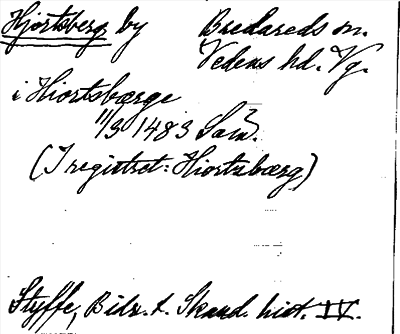 Hjortsberg by Bredareds sn.
Vedens hd. Vg.
i Hiortsbærge
11/3 1483
(I registret: Hiortzbærg)
Styffe, Bidr. t. Skand. hist. IV.